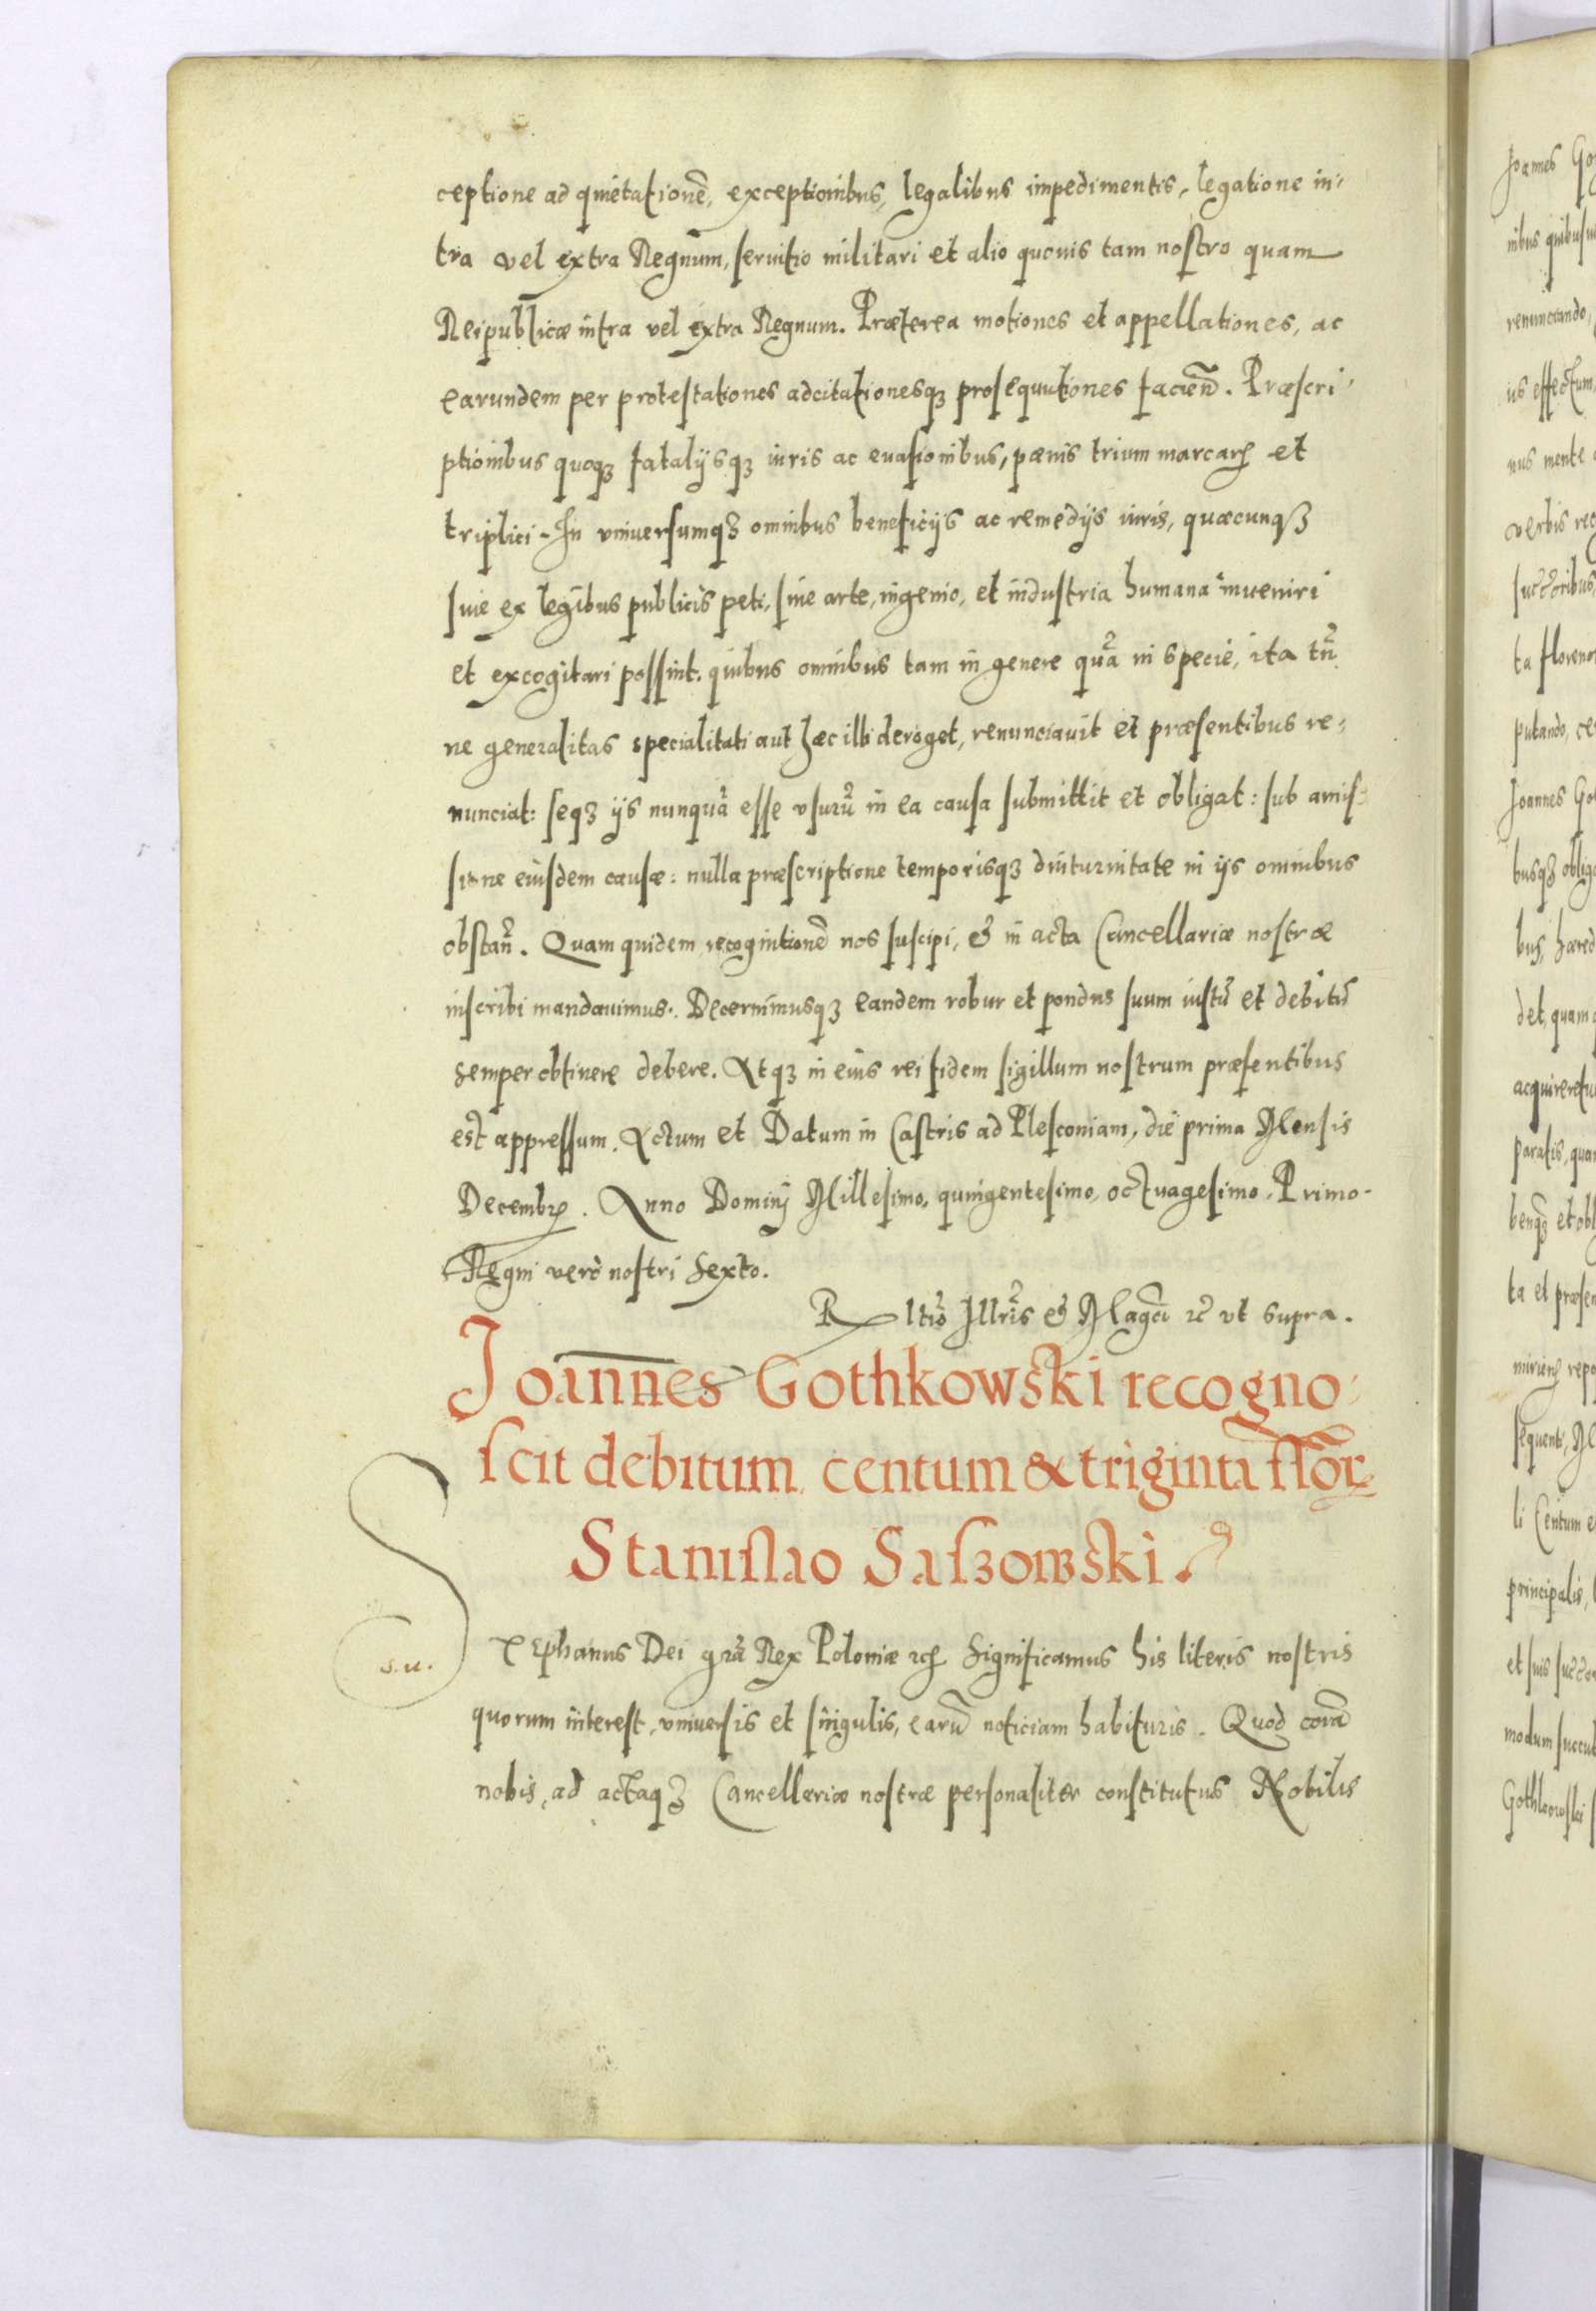 ceptione ad quietationẽ, exceptionibus, legalibus impedimentis, legatione in-
tra vel extra Regnum, seruitio militari et alio quouis tam nostro quam
Reipublicæ intra vel extra Regnum. Præterea motiones et appellationes, ac
earundem per protestationes adcitationesqꝫ prosequutiones facień. Præscri-
ptionibus quoqꝫ fatalijsqꝫ iuris ac euasionibus, pænis trium marcarꝭ et
triplici. In vniuersumqꝫ omnibus beneficijs ac remedijs iuris, quæcunqꝫ
siue ex legibus publicis peti, siue arte, ingenio, et industria humana inueniri
et excogitari possint. quibus omnibus tam in genere quã in specie, ita tñ
ne generalitas specialitati aut hæc illi deroget, renunciauit et præsentibus re-
nunciat: seqꝫ ijs nunquã esse vsurũ in ea causa submittit et obligat: sub amis-
sione eiusdem causæ: nulla præscriptione temporisqꝫ diuturnitate in ijs omnibus
obstañ. Quam quidem recognitionẽ nos suscipi, & in acta Cancellariæ nostræ
inscribi mandauimus. Decernimusqꝫ eandem robur et pondus suum iustũ et debitũ
semper obtinere debere. Atqꝫ in eius rei fidem sigillum nostrum præsentibus
est appressum. Actum et Datum in Castris ad Plesconiam, die prima Mensis
Decembrꝭ. Anno Dominj Millesimo, quingentesimo, octuagesimo. Primo.
Regni vero nostri Sexto.
R ltio Illris & Magci &c vt supra.
Joannes Gothkowski recogno-
scit debitum centum & triginta flor
Stanislao Saszowski.
S.u.
STephanus Dei grã Rex Poloniæ &c Significamus his literis nostris
quorum interest, vniuersis et singulis, earũ noticiam habituris. Quod corã
nobis, ad actaqꝫ Cancellariæ nostræ personaliter constitutus Nobilis